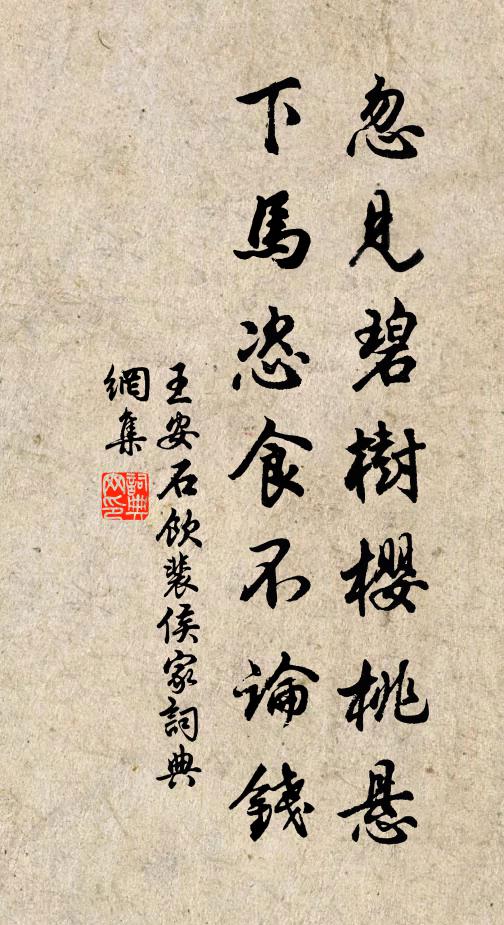 忽見碧樹櫻桃懸
下馬恣食不論錢
王安石飲裴侯家詞典
網集
詞典網印